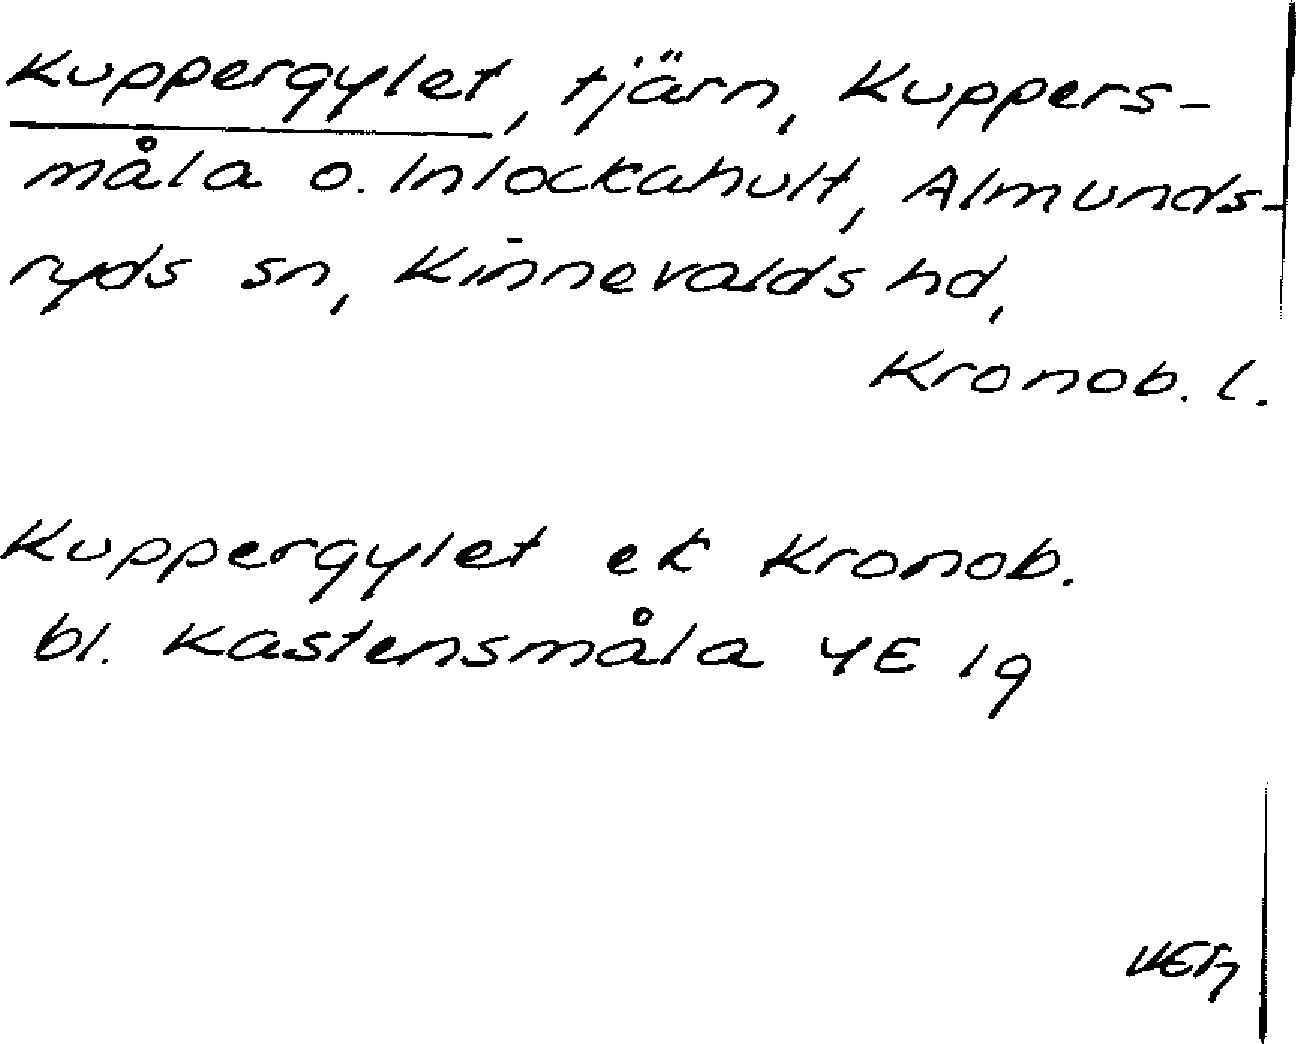 Kuppergylet, tjärn, Kuppers-
måla o. Inlockahult, Almunds-
ryds sn, Kinnevalds hd,
Kronob. l.
Kuppergylet ek Kronob.
bl. Kastensmåla 4E 1g